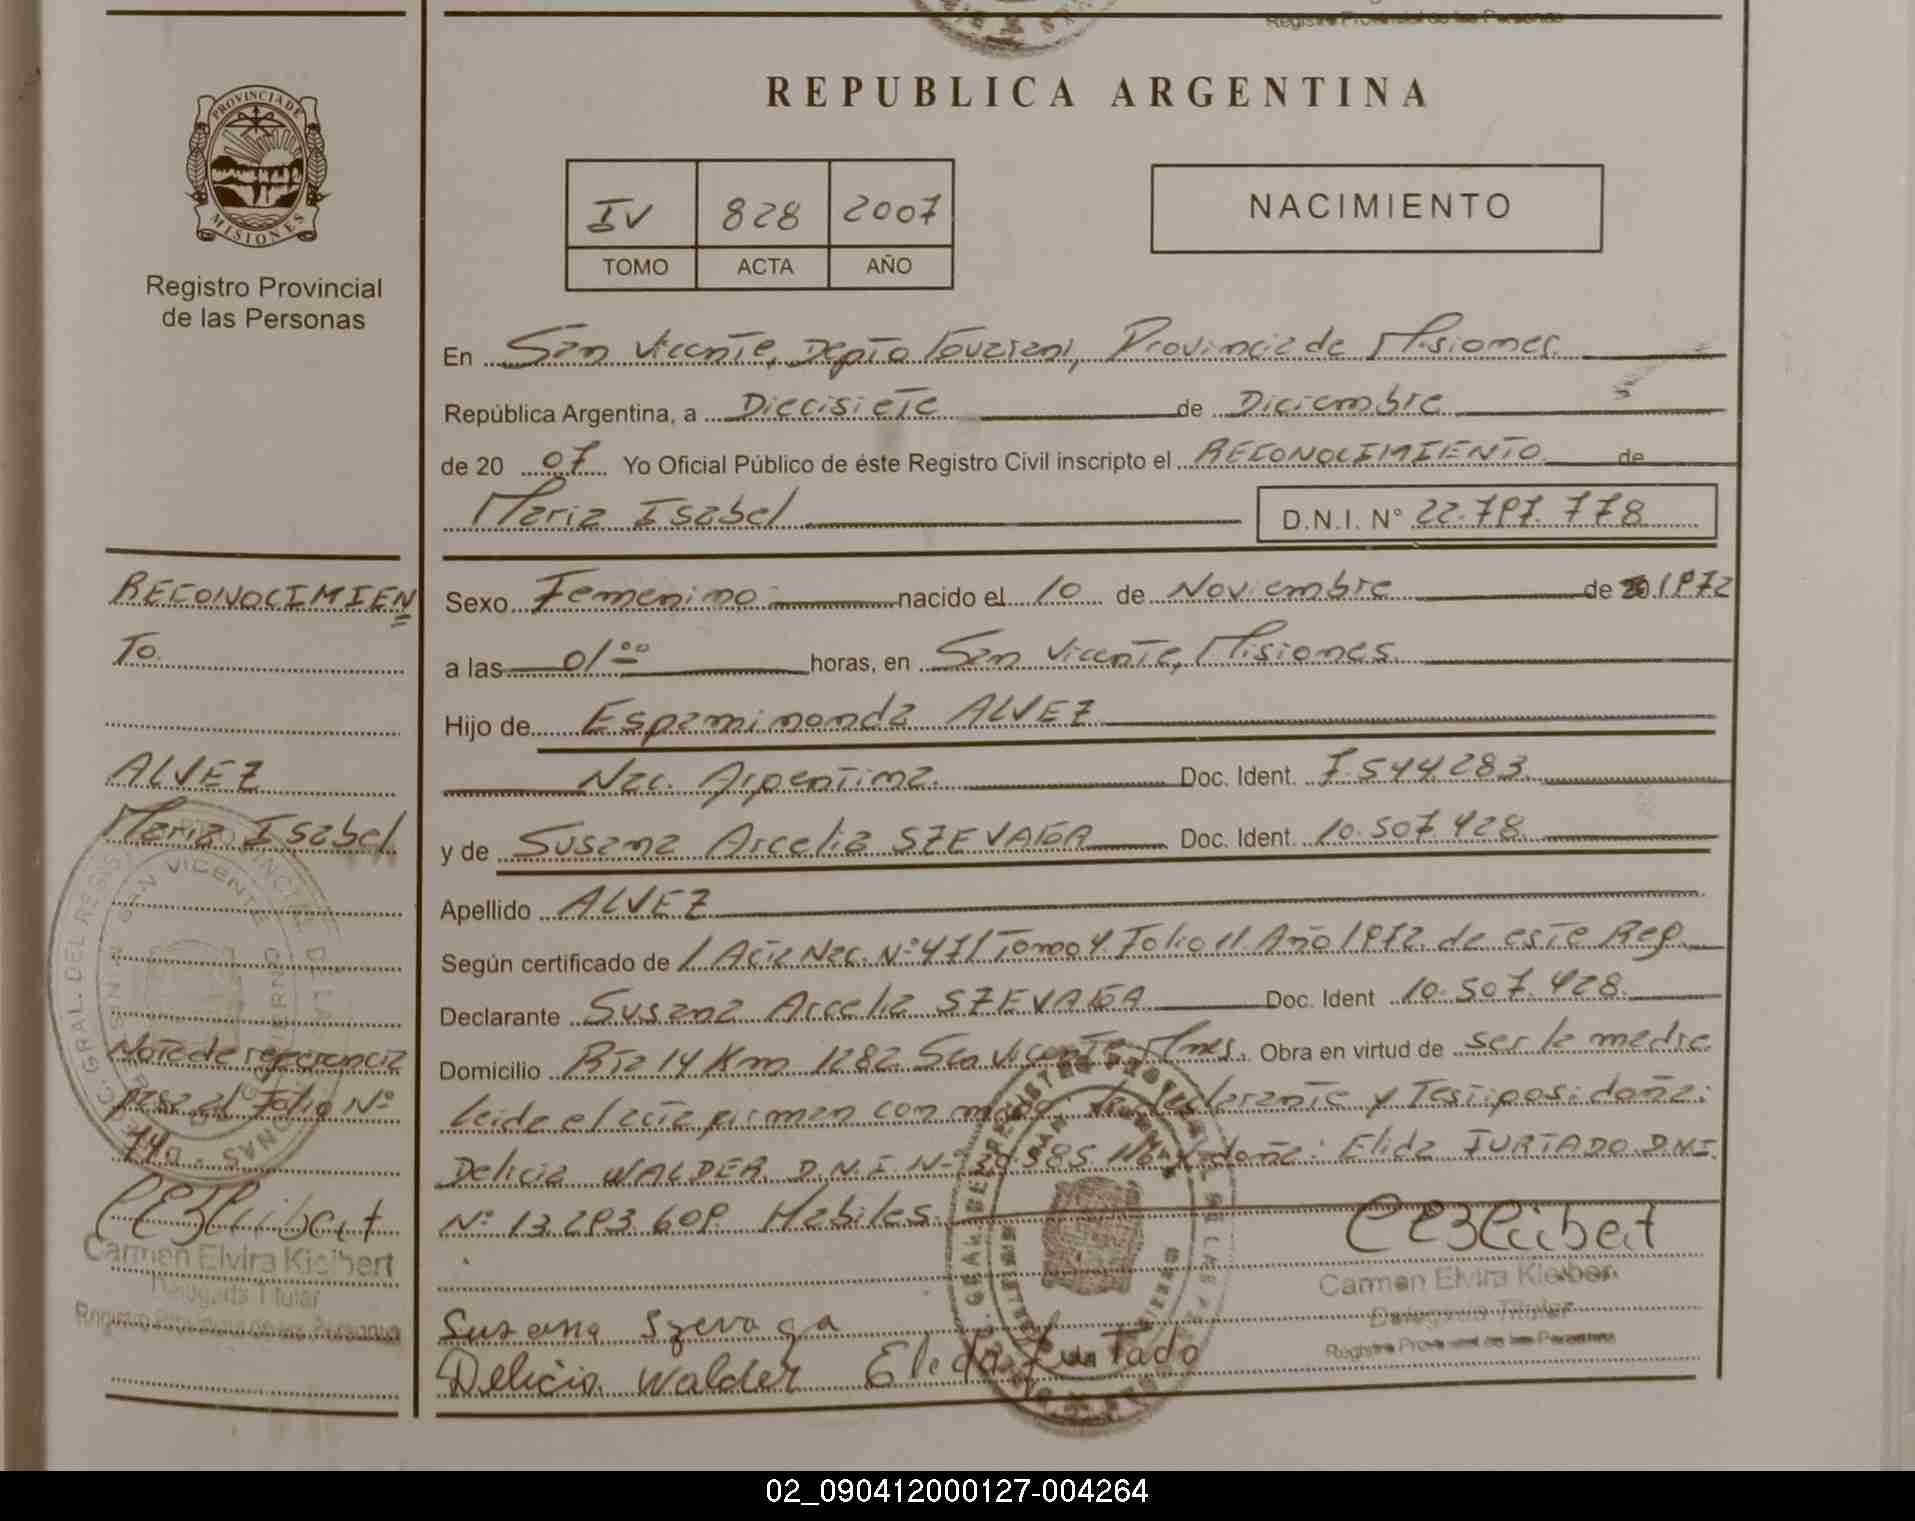 Registro Provincial de las Personas
REPUBLICA ARGENTINA
PROVINCIA DE
MISIONES
Registro Provincial
de las Personas
IV 828 2007
TOMO ACTA AÑO
NACIMIENTO
En San Vicente, Depto Guaraní, Provincia de Misiones.
República Argentina, a Diecisiete de Diciembre
de 20 07 Yo Oficial Público de éste Registro Civil inscripto el RECONOCIMIENTO de
Maria Isabel D.N.I. N° 22.797.778
Sexo Femenino nacido el 10 de Noviembre de 1972
a las 01:00 horas, en San Vicente, Misiones.
Hijo de Espaminonda ALVEZ
Nac. Argentina. Doc. Ident. 7.544283
y de Susana Arcelia SZEVAGA Doc. Ident. 10.507.428
Apellido ALVEZ
Según certificado de / Acta Nac. N° 471 Tomo 4 Folio 11 Año 1972 de este Reg.
Declarante Susana Arcelia SZEVAGA Doc. Ident 10.507.428.
Domicilio Rta 14 Km 1282 San Vicente Mnes. Obra en virtud de ser la madre
Leida el acta firman con la declarante y Testigos: doña:
Delicia WALDER D.N.I N° doña: Elida FURTADO D.N.I.
N° 13.293.609. Habiles.
Susana Szevaga
Delicia Walder Elida Furtado
Carmen Elvira Kleibert
Delegada Titular
Registro Provincial de las Personas
RECONOCIMIEN
TO.
ALVEZ
Maria Isabel
Nota de referencia
pasa al Folio N°
Carmen Elvira Kleibert
Delegada Titular
Registro Provincial de las Personas
02_090412000127-004264